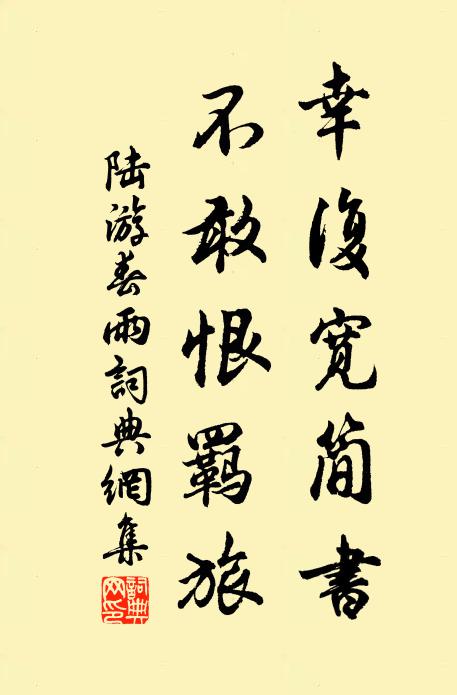 幸復寬簡書
不敢恨羈旅
陸游春雨詞典網集
詞典網印